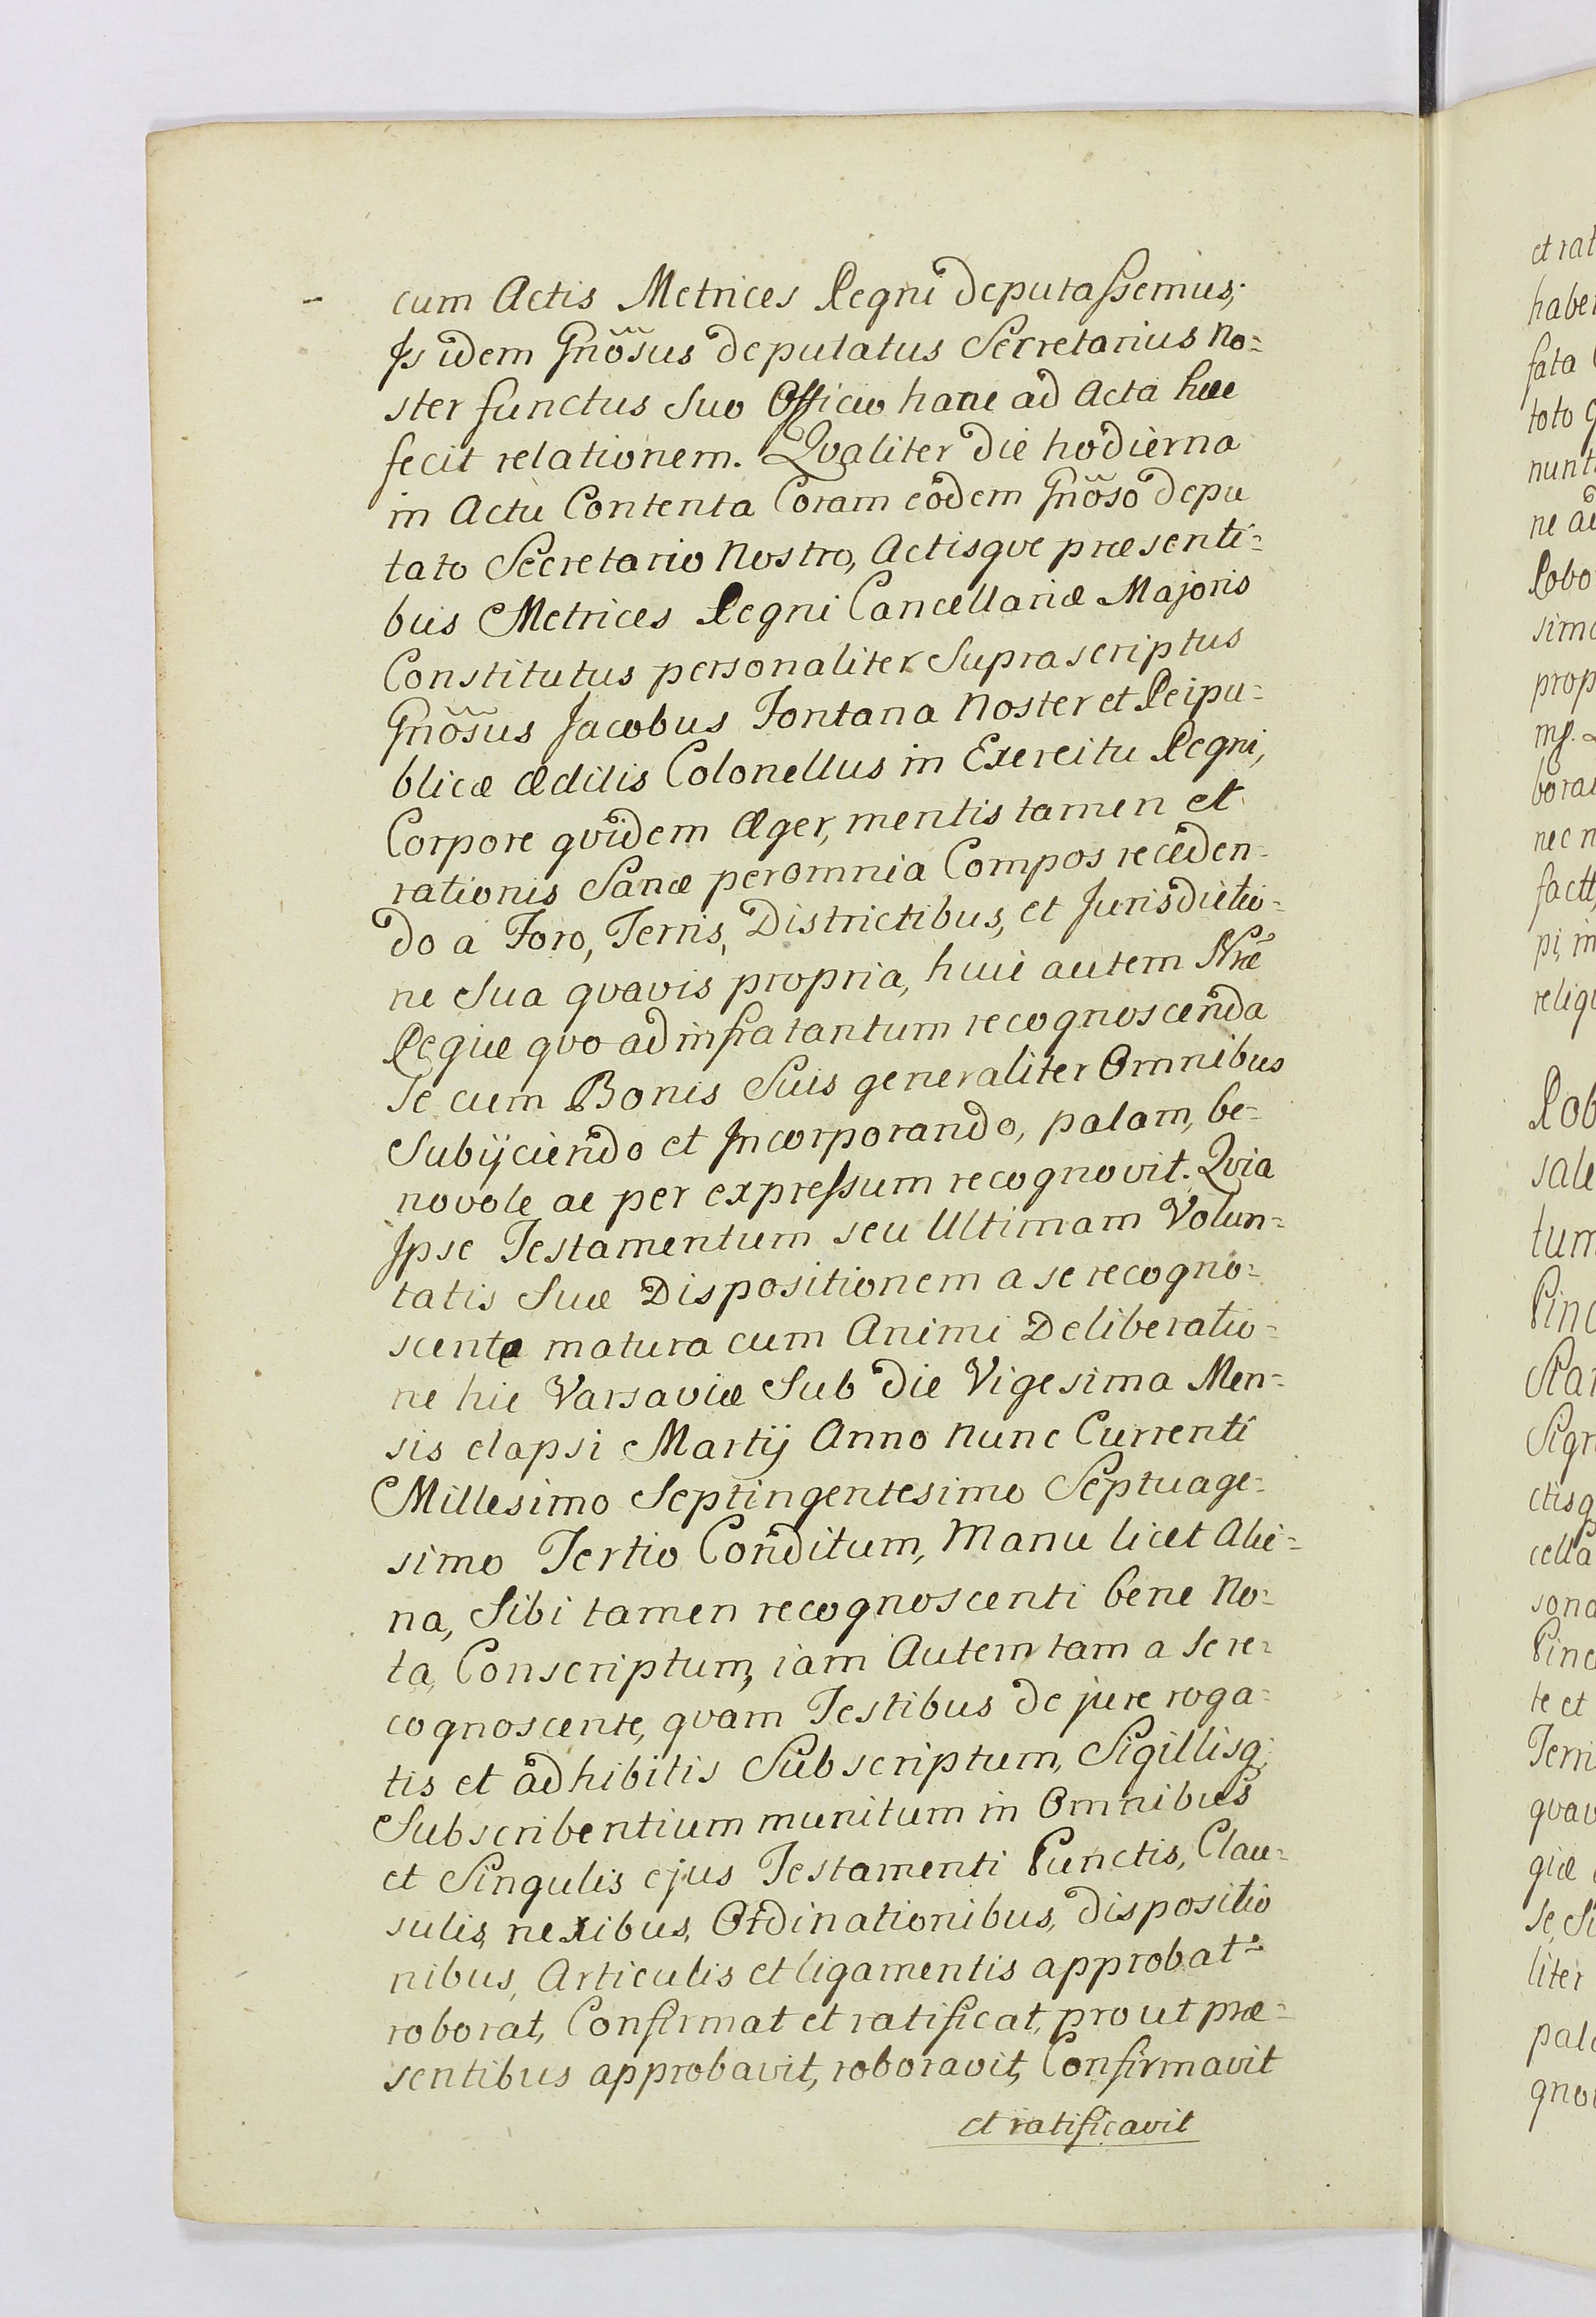 cum Actis Metrices Regni deputaſsemus;
Is idem Gnõsus deputatus Secretarius No=
ster functus Suo Officio hanc ad Acta hæc
fecit relationem. Qvaliter die hodierna
in Actu Contenta Coram eodem Gnõso depu
tato Secretario Nostro, Actisqve præsenti=
bus Metrices Regni Cancellariæ Majoris
Constitutus personaliter Suprascriptus
Gnõsus Jacobus Fontana Noster et Reipu=
blicæ Ædilis Colonellus in Exercitu Regni,
Corpore qvidem Æger, mentis tamen et
rationis Sanæ per omnia Compos receden=
do a Foro, Terris, Districtibus, et Jurisdictio=
ne Sua qvavis propria, huic autem Nræ
Regiæ qvo ad infra tantum recognoscenda
Se cum Bonis Suis generaliter Omnibus
Subijciendo et Incorporando, palam, be=
novole ac per expreſsum recognovit. Qvia
Ipse Testamentum seu Ultimam Volun=
tatis Suæ Dispositionem a se recogno=
scente matura cum Animi Deliberatio=
ne hic Varsaviæ Sub die Vigesima Men=
sis elapsi Martij Anno nunc Currenti
Millesimo Septingentesimo Septuage=
simo Tertio Conditum, Manu licet Alie=
na, Sibi tamen recognoscenti bene No=
ta, Conscriptum, iam Autem tam a Se re=
cognoscente, qvam Testibus de jure roga=
tis et adhibitis Subscriptum, Sigillisq;
Subscribentium munitum in Omnibus
et Singulis ejus Testamenti Punctis, Clau=
sulis, nexibus, Ordinationibus, dispositio
nibus, Articulis et ligamentis approbat
roborat, Confirmat et ratificat, prout præ=
sentibus approbavit, roboravit, Confirmavit
et ratificavit